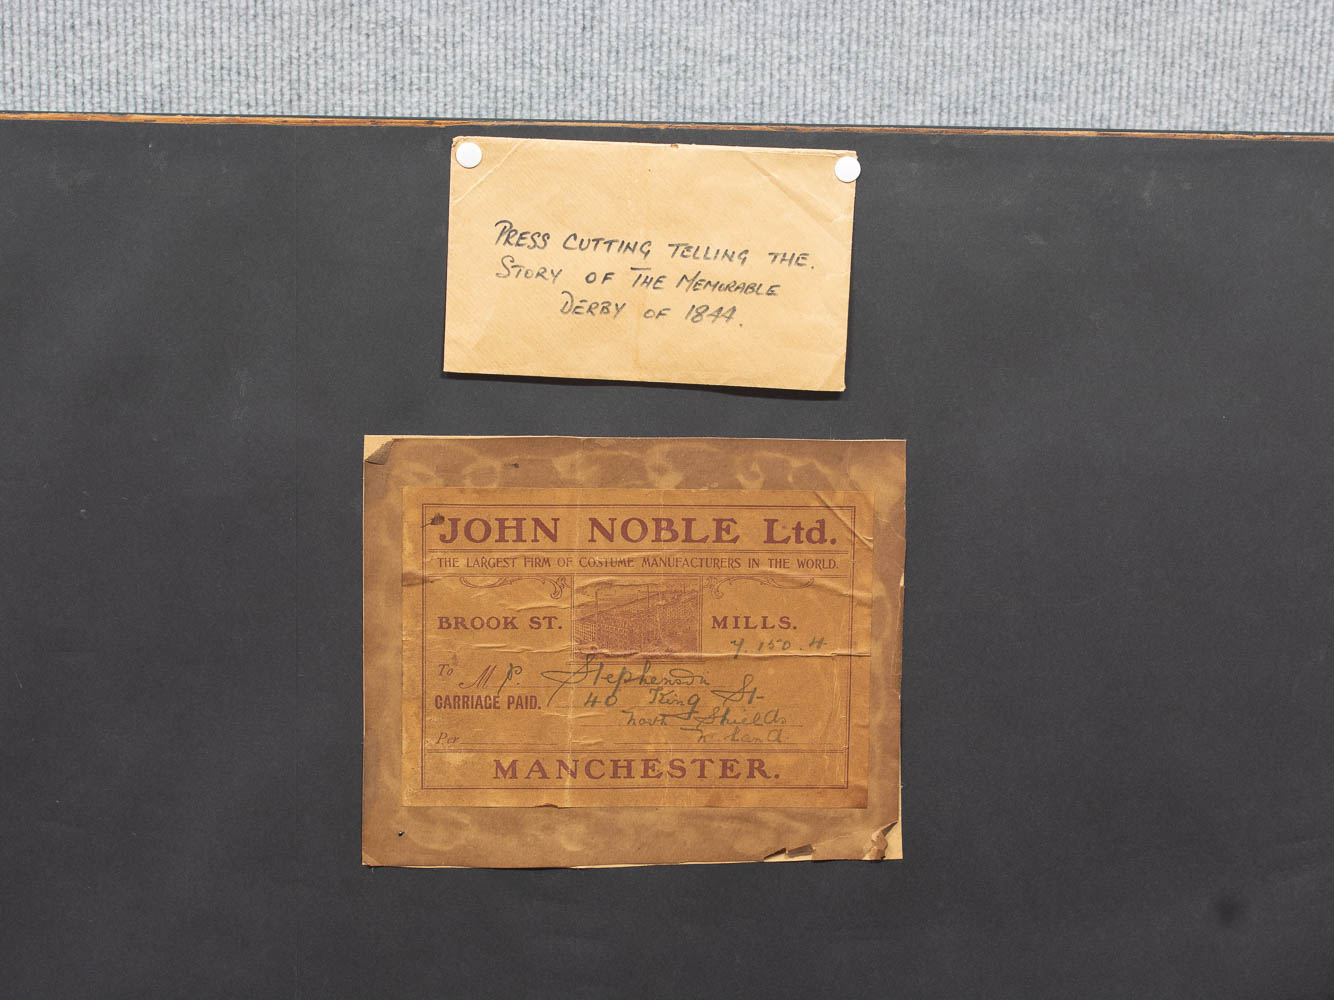 PRESS CUTTING TELLING THE.
STORY OF THE MEMORABLE
DERBY OF 1844.
JOHN NOBLE Ltd.
THE LARGEST FIRM OF COSTUME MANUFACTURERS IN THE WORLD.
BROOK ST. MILLS.
Y. 150. H
To M P. Stephenson
CARRIAGE PAID. 40 King St
North Shields
Per N. Land
MANCHESTER.